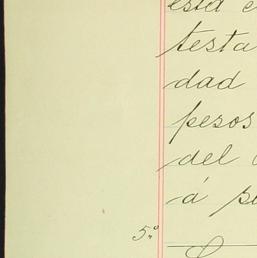 está e
testa
dad
pesos
del
á p
5.º